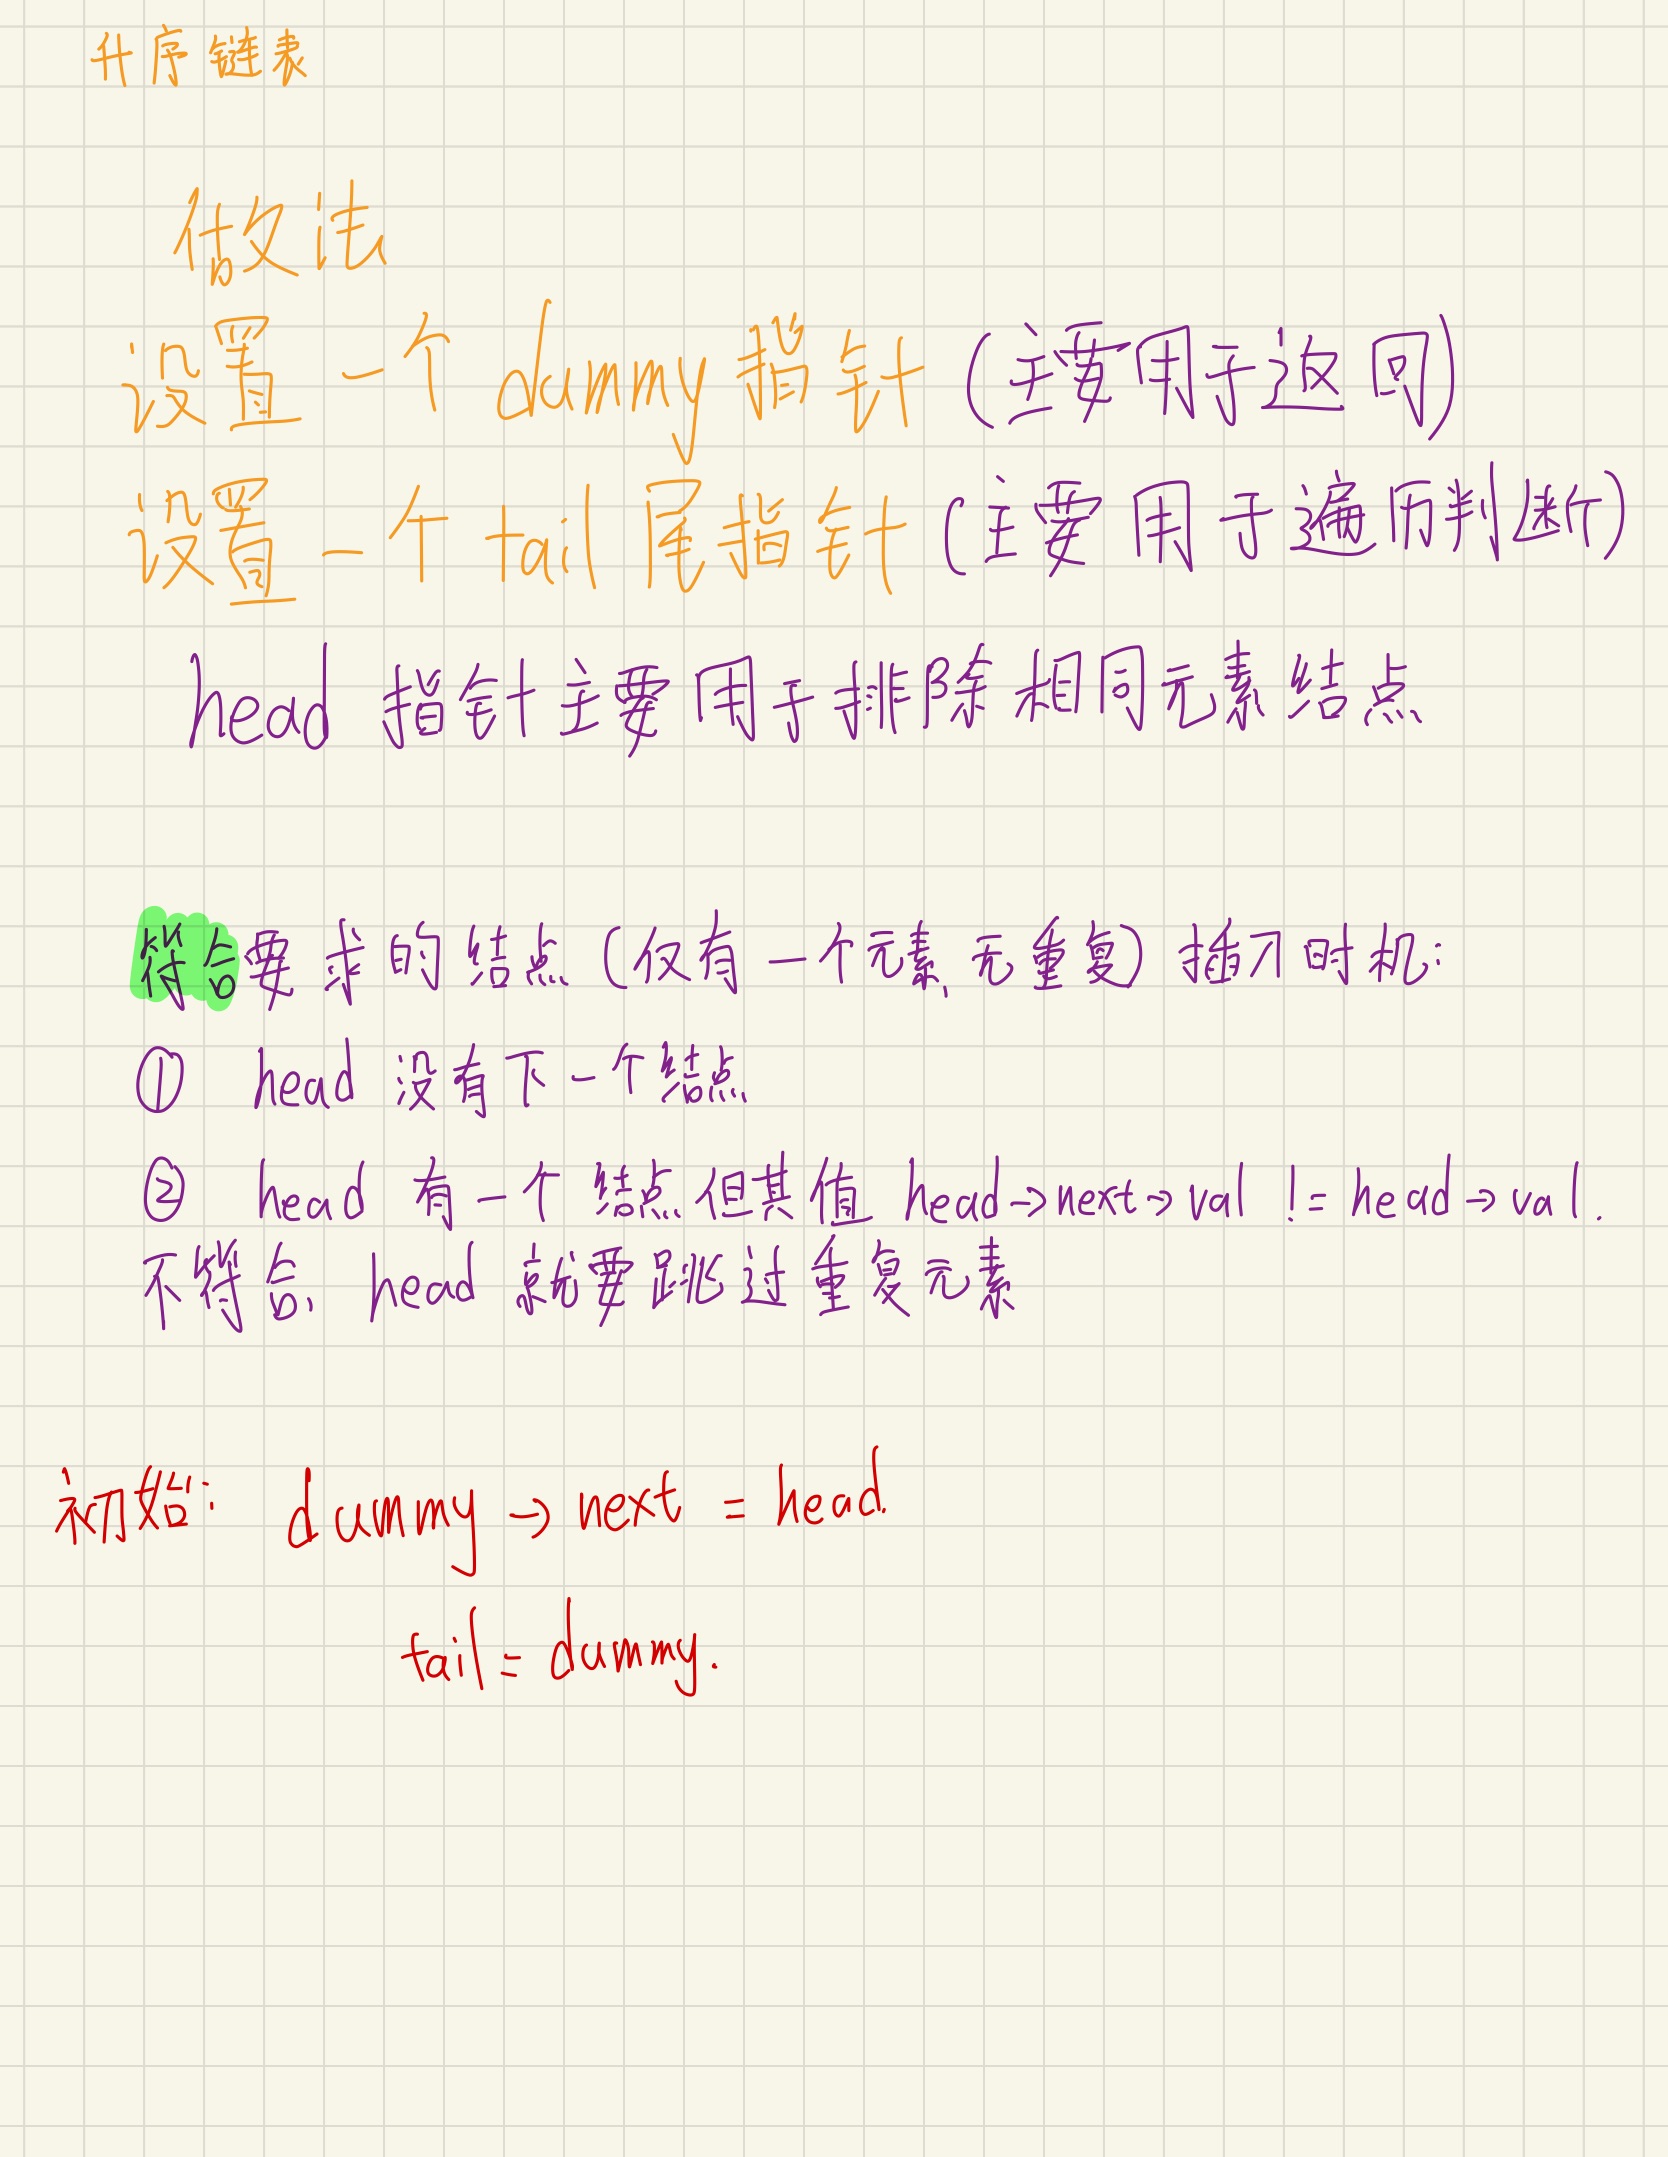 升序链表
做法
设置一个 dummy 指针 (主要用于返回)
设置一个 tail 尾指针 (主要用于遍历判断)
head 指针主要用于排除相同元素结点
符合要求的结点 (仅有一个元素, 无重复) 插入时机:
① head 没有下一个结点
② head 有一个结点但其值 head→next→val != head→val.
不符合, head 就要跳过重复元素
初始: dummy → next = head.
tail = dummy.